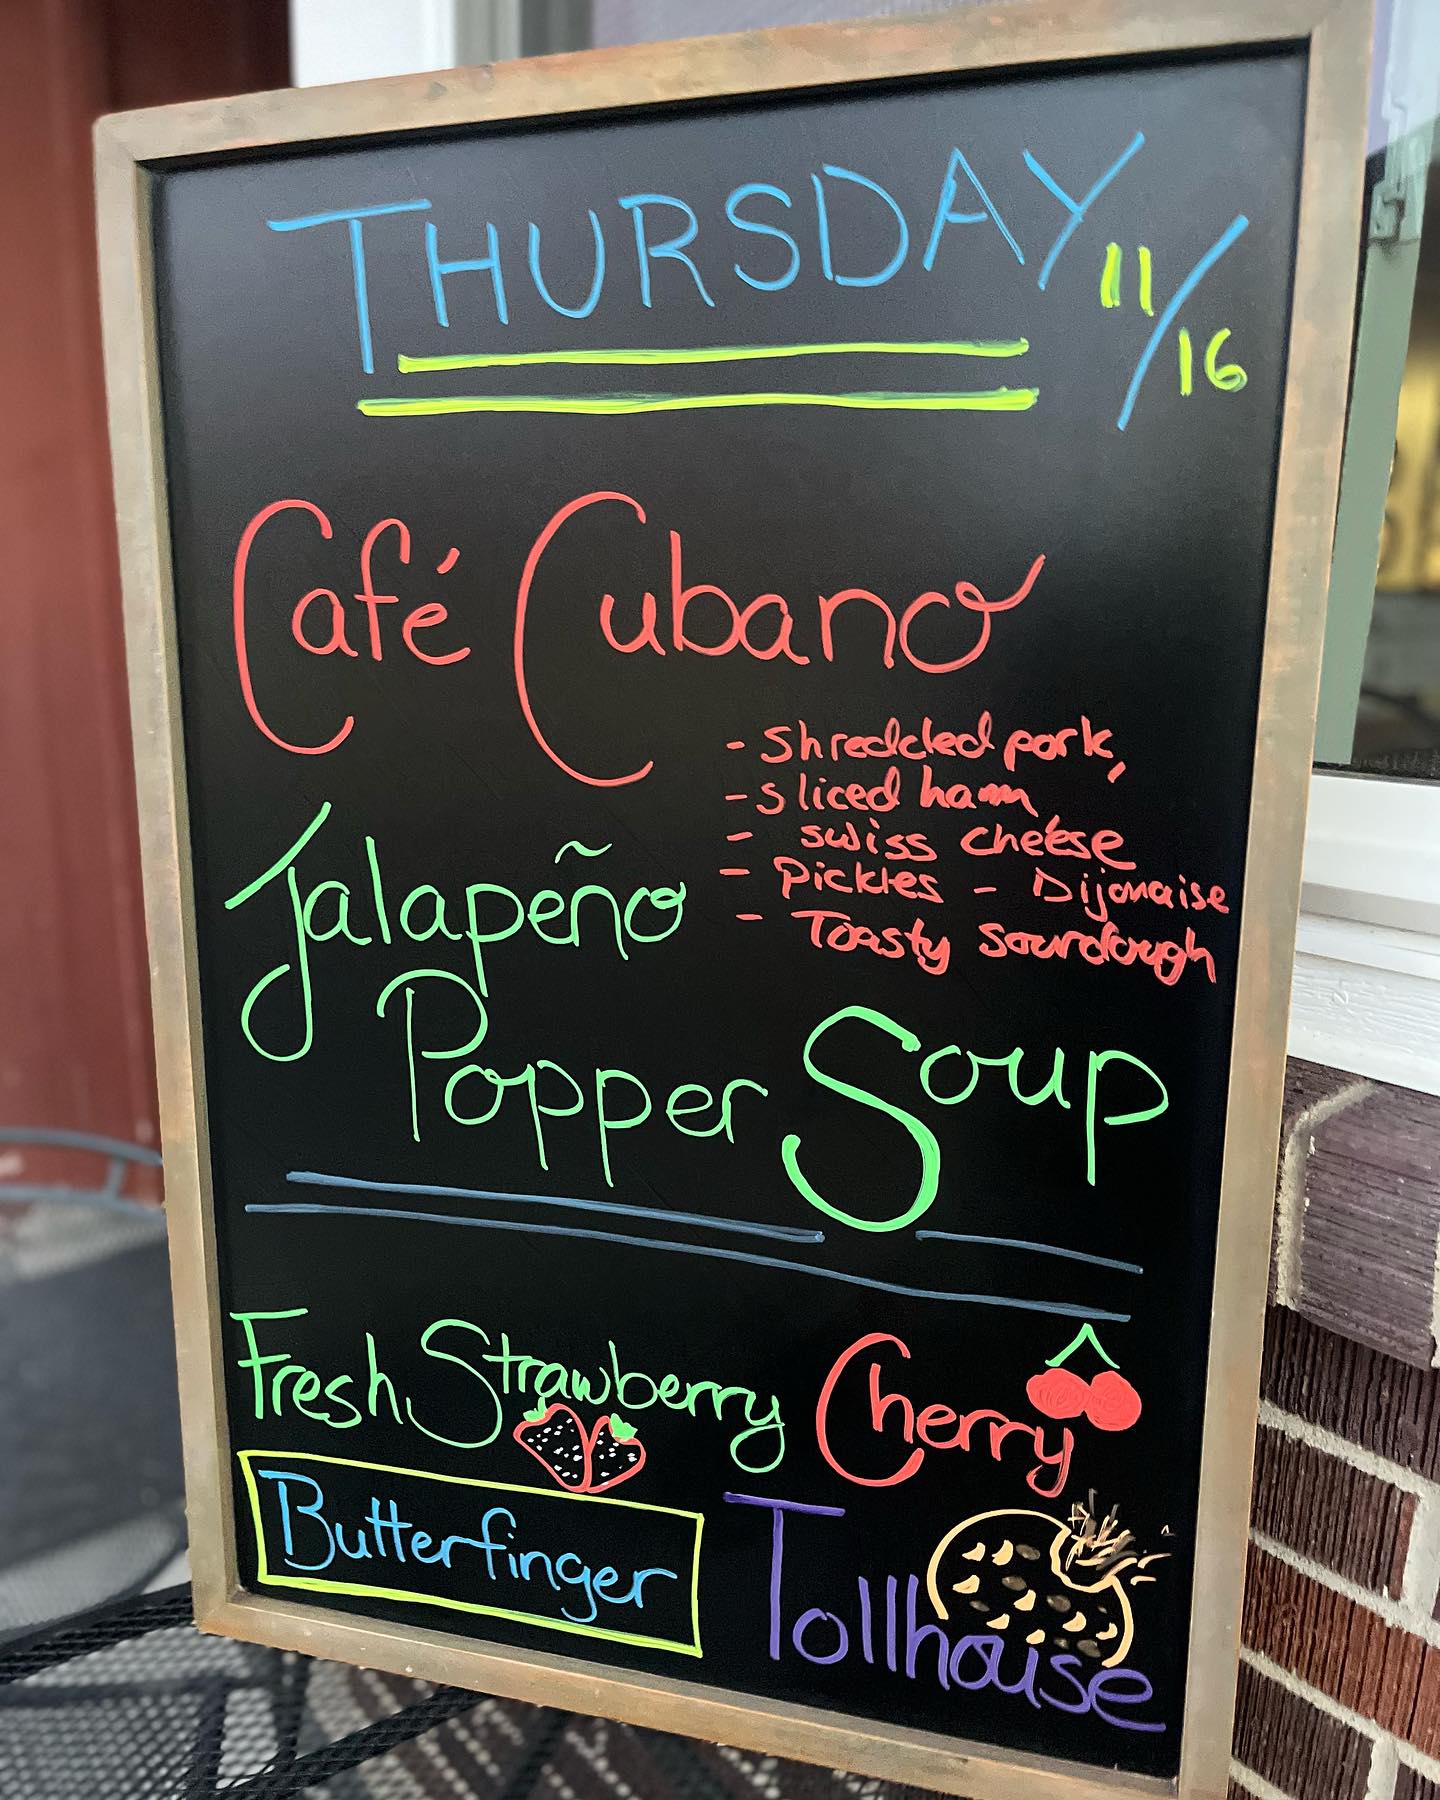 THURSDAY 11/16
Café Cubano
- Shredded pork,
- sliced ham
- swiss cheese
- Pickles - Dijonaise
- Toasty sourdough
Jalapeño
Popper Soup
Fresh Strawberry Cherry
Butterfinger Tollhouse